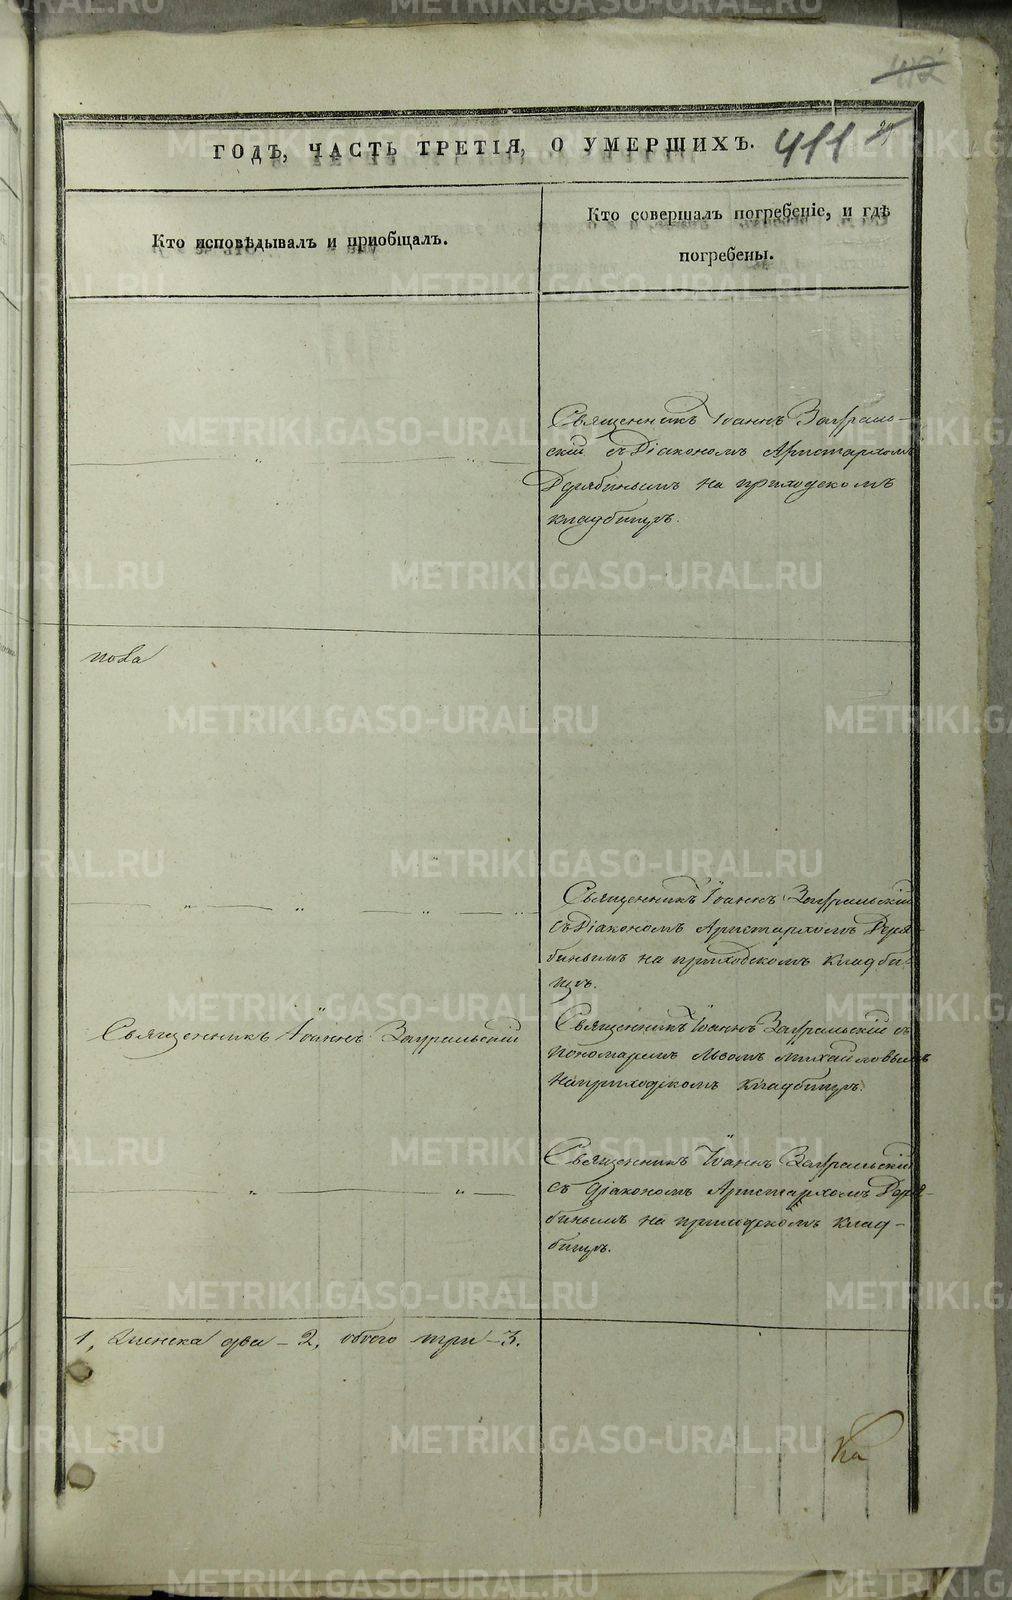 412
ГОДЪ, ЧАСТЬ ТРЕТІЯ, О УМЕРШИХЪ. 411
Кто исповѣдывалъ и пріобщалъ.
Кто совершалъ погребеніе, и гдѣ
погребены.
Священникъ Іоаннъ Заураль-
скій съ Діакономъ Аристархомъ
Дерябинымъ на приходскомъ
кладбищѣ.
пова
Священникъ Іоаннъ Зауральскій
съ Діакономъ Аристархомъ Деря-
бинымъ на приходскомъ кладби-
щѣ.
Священникъ Іоаннъ Зауральскій
Священникъ Іоаннъ Зауральскій съ
пономаремъ Львомъ Михайловымъ
на приходскомъ кладбищѣ.
Священникъ Іоаннъ Зауральскій
съ діакономъ Аристархомъ Деря-
бинымъ на приходскомъ клад-
бищѣ.
1, женска два - 2, обоего три - 3.
METRIKI.GASO-URAL.RU